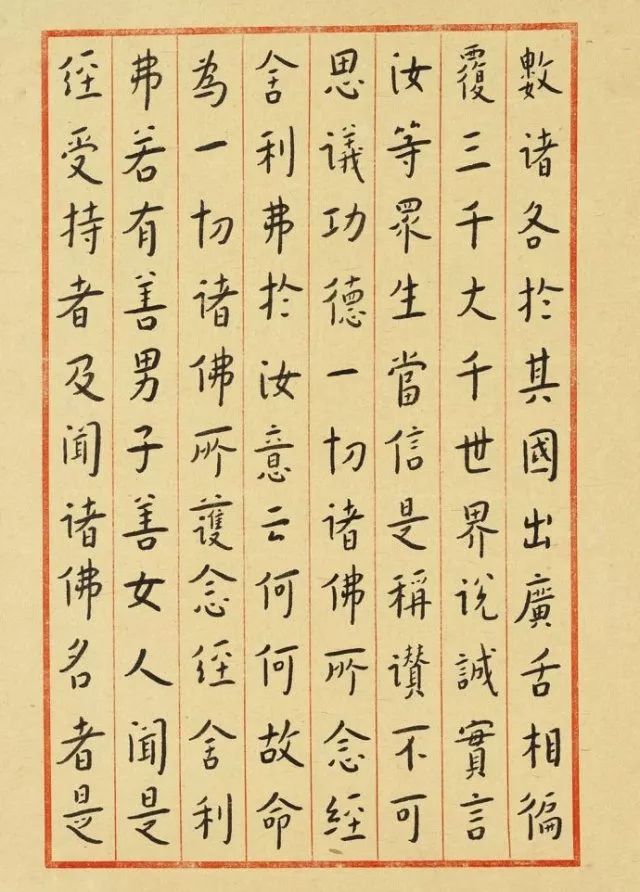 數诸各於其國出廣舌相徧
覆三千大千世界说誠實言
汝等眾生當信是稱讃不可
思議功德一切诸佛所念經
舍利弗於汝意云何何故命
為一切诸佛所護念經舍利
弗若有善男子善女人闻是
經受持者及闻诸佛名者是